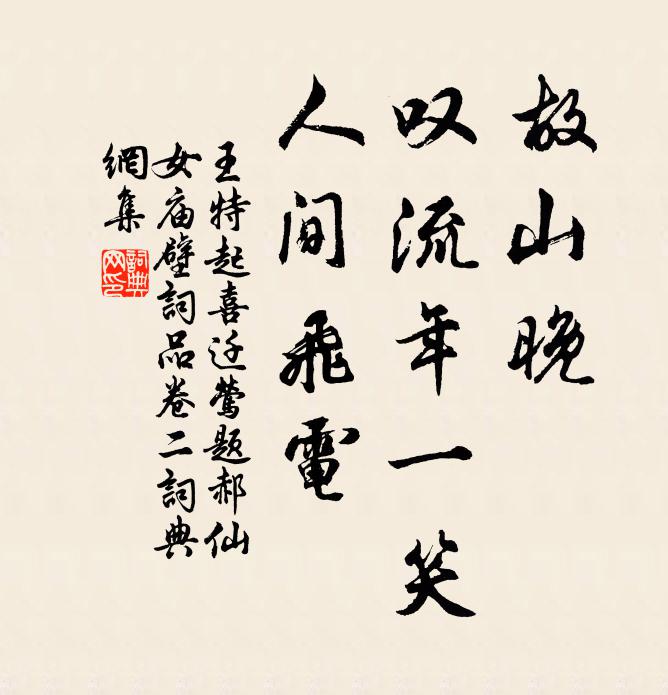 故山晚
叹流年一笑
人间飛電
王特起喜迁莺题郝仙
女庙壁詞品卷二詞典
網集
詞典
网印